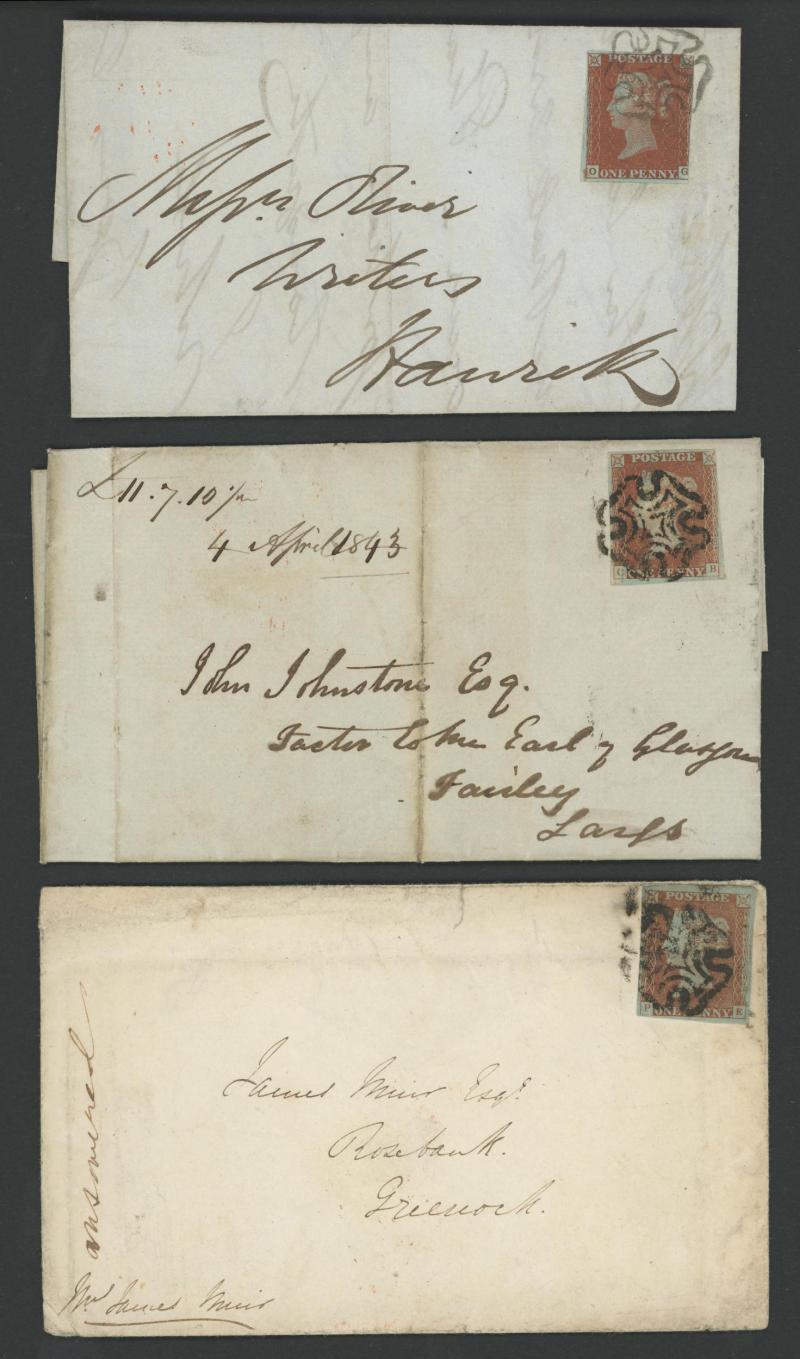 POSTAGE
ONE PENNY
O G
Messrs Oliver
Writers
Hawick
POSTAGE
ONE PENNY
C B
£11.7.10
4 April 1843
John Johnstone Esq.
Factor to the Earl of Glasgow
Fairley
Largs
POSTAGE
ONE PENNY
P E
answered
James Muir Esqr.
Rosebank.
Greenock.
Mr James Muir